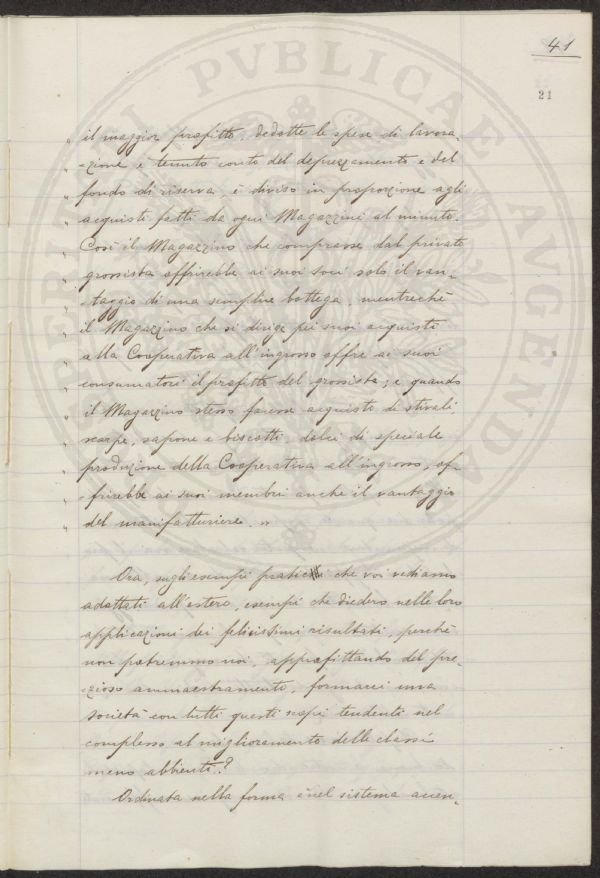 41
21
„ il maggior profitto, dedotte le spese di lavora-
„ -zione e tenuto conto del deprezzamento e del
„ fondo di riserva, è diviso in proporzione agli
„ acquisti fatti da ogni Magazzini al minuto.
„ Così il Magazzino che comprasse dal privato
„ grossista offrirebbe ai suoi soci solo il van-
„ -taggio di una semplice bottega, mentrechè
„ il Magazzino che si dirige pei suoi acquisti
„ alla Cooperativa all'ingrosso offre ai suoi
„ consumatori il profitto del grossista; e quando
„ il Magazzino stesso facesse acquisti di stivali,
„ scarpe, sapone e biscotti, dolci di speciale
„ produzione della Cooperativa all'ingrosso, of-
„ -frirebbe ai suoi membri anche il vantaggio
„ del manifatturiere. „
Ora, sugli esempii pratici che voi vediamo
adottati all'estero, esempii che diedero nelle loro
applicazioni dei felicissimi risultati, perchè
non potremmo noi, approfittando del pre-
-zioso ammaestramento, formarci una
società con tutti questi scopi tendenti nel
complesso al miglioramento delle classi
meno abbienti?
Ordinata nella forma e nel sistema accen-
PERICULIS PVBLICAE AVGENDA